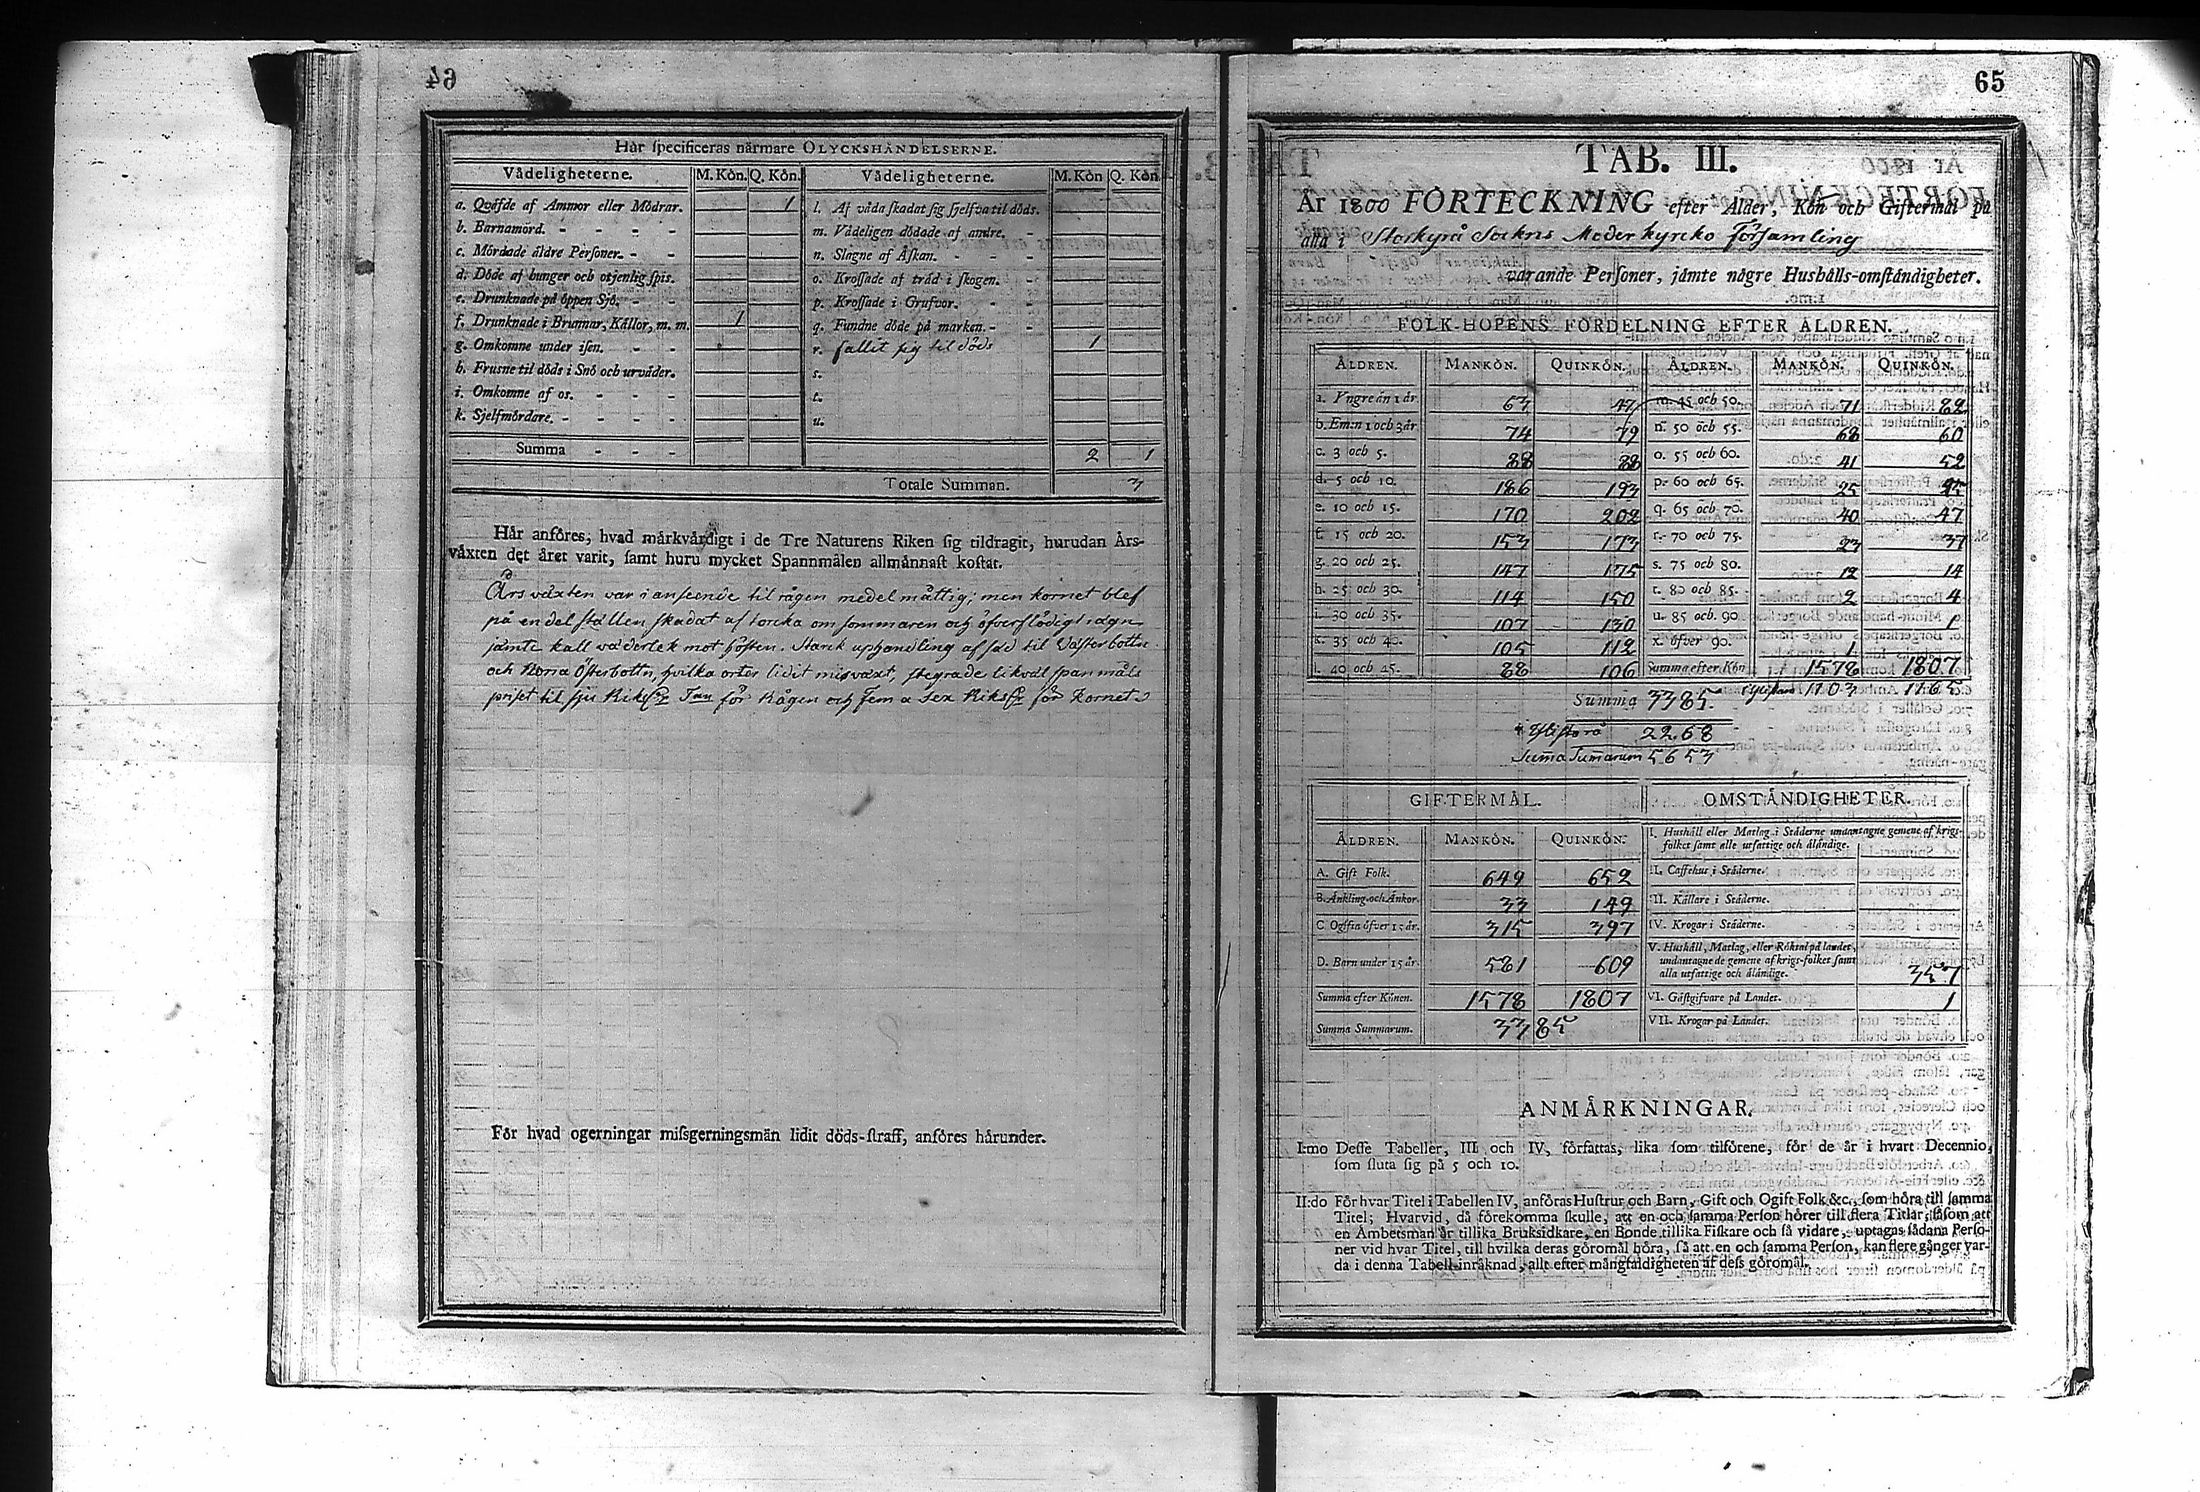 64
Hår specificeras närmare OLYCKSHÄNDELSERNE.
Vådeligheterne. M. Kön. Q. Kön. Vådeligheterne. M. Kön Q. Kön.
a. Qväfde af Ammor eller Mödrar. 1 l. Af våda skadat sig sjelfva til döds.
b. Barnamord. m. Vådeligen dödade af andre.
c. Mördade äldre Personer. n. Slagne af Åskan.
d. Döde af hunger och otjenlig spis. o. Krossade af träd i skogen.
e. Drunknade på öppen Sjö. p. Krossade i Grufvor.
f. Drunknade i Brunnar, Källor, m. m. 1 q. Fundne döde på marken.
g. Omkomne under isen. r. fallit sig til döds 1
h. Frusne til döds i Snö och urväder. s.
i. Omkomne af os. t.
k. Sjelfmördare. u.
Summa 2 1
Totale Summan. 3
Hår anföres, hvad märkvärdigt i de Tre Naturens Riken sig tildragit, hurudan Års-
växten det året varit, samt huru mycket Spannmålen allmännast kostat.
Årsväxten var i anseende til rågen medelmåttig; men kornet blef
på en del ställen skadat af torcka om sommaren och öfverflödigt rägn
jämte kall väderlek mot hösten. Starck uphandling af säd til Västerbotten
och Norra Österbottn, hvilka orter lidit misväxt, stegrade likväl spanmåls
priset til sju Riksdr Tun för Rågen och Fem a Sex Riksdr för Kornet
För hvad ogerningar missgerningsmän lidit döds-straff, anföres hårunder.
65
TAB. III.
År 1800 FÖRTECKNING efter Ålder, Kön och Giftermål på
alla i Storkyrå Sockns Moderkyrko Församling
varande Personer, jämte någre Hushålls-omständigheter.
FOLK-HOPENS FÖRDELNING EFTER ÅLDREN.
ÅLDREN. MANKÖN. QUINKÖN. ÅLDREN. MANKÖN. QUINKÖN.
a. Yngre än 1 år. 63 47 m. 45 och 50. 71 82
b. Em:n 1 och 3 år 74 79 n. 50 och 55. 68 60
c. 3 och 5. 88 88 o. 55 och 60. 41 52
d. 5 och 10. 186 193 p. 60 och 65. 25
e. 10 och 15. 170 202 q. 65 och 70. 40 47
f. 15 och 20. 153 173 r. 70 och 75. 23 37
g. 20 och 25. 147 175 s. 75 och 80. 12 14
h. 25 och 30. 114 150 t. 80 och 85. 2 4
i. 30 och 35. 107 130 u. 85 och 90. 1
k. 35 och 40. 105 112 x. öfver 90. 1
l. 40 och 45. 88 106 Summa efter Kön 1578 1807
Summa 3385. 1103 1165
2268
Summa Summarum 5653
GIFTERMÅL. OMSTÄNDIGHETER.
ÅLDREN. MANKÖN. QUINKÖN. I. Hushåll eller Matlag i Städerne undantagne gemene af krigs-
folket samt alle utfattige och åländige.
A. Gift Folk. 649 652 II. Caffehus i Städerne.
B. Änkling. och Änkor. 33 149 III. Källare i Städerne.
C. Ogifta öfver 15 år. 315 397 IV. Krogar i Städerne.
D. Barn under 15 år. 581 609 V. Hushåll, Matlag, eller Röktal på landet,
undantagne de gemene af krigs-folket samt
alla utfattige och åländige. 357
Summa efter Könen. 1578 1807 VI. Gästgifvare på Landet. 1
Summa Summarum. 3385 VII. Krogar på Landet.
ANMÄRKNINGAR.
I:mo Desse Tabeller, III och IV, författas, lika som tilförene, för de år i hvart Decennio,
som sluta sig på 5 och 10.
II:do För hvar Titel i Tabellen IV, anföras Hustrur och Barn, Gift och Ogift Folk &c., som höra till samma
Titel; Hvarvid, då förekomma skulle, att en och samma Person hörer till flera Titlar, såsom att
en Ämbetsman är tillika Bruksidkare, en Bonde tillika Fiskare och så vidare, uptagas sådana Perso-
ner vid hvar Titel, till hvilka deras göromål höra, så att en och samma Person, kan flere gånger var-
da i denna Tabell inräknad, allt efter mångfaldigheten af dess göromål.